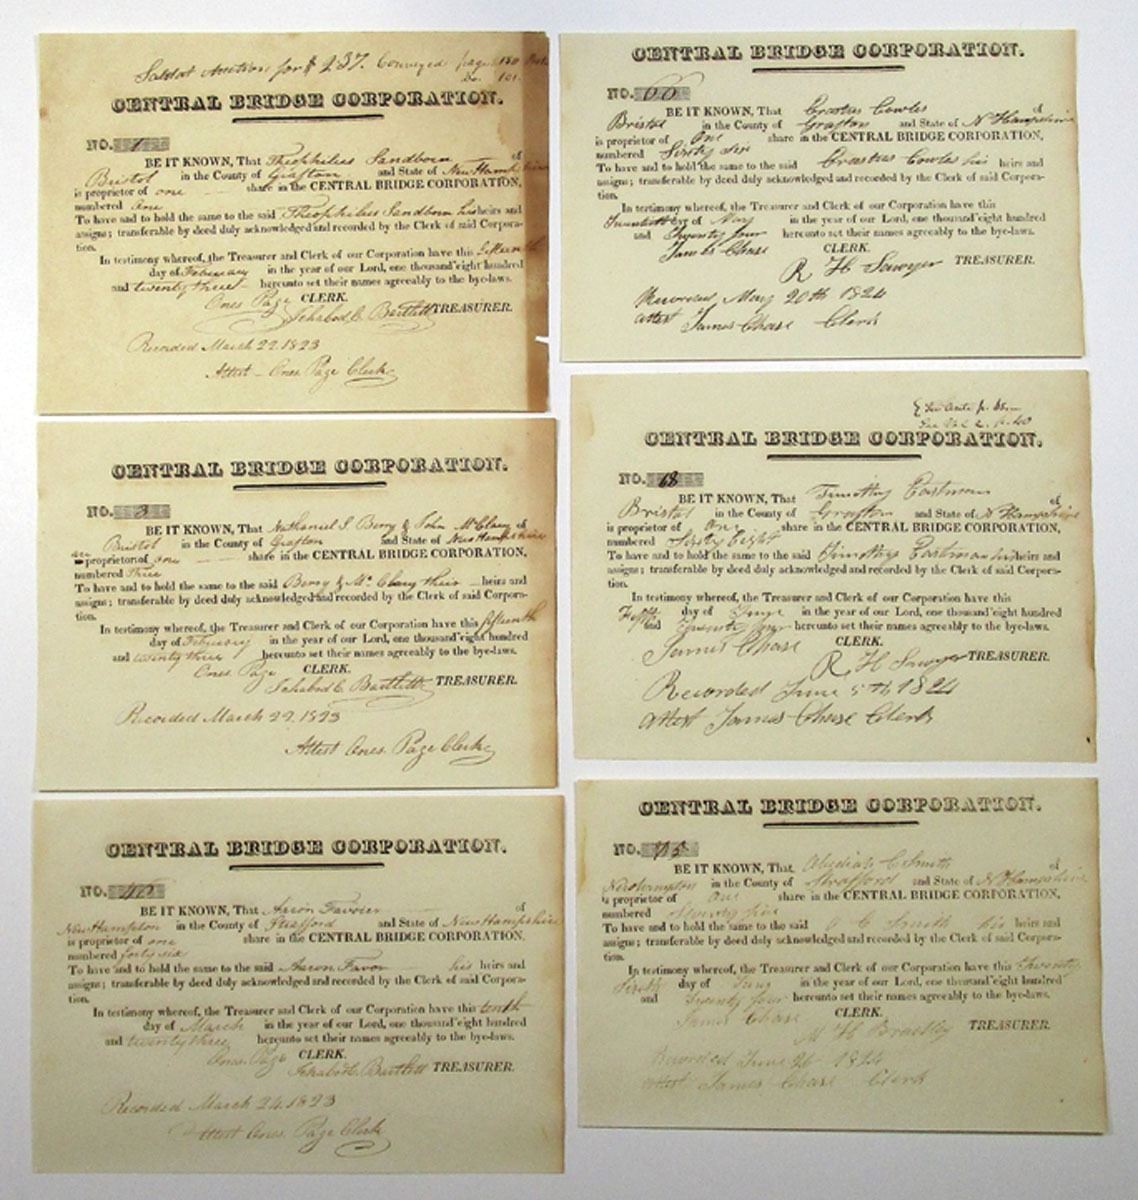 Sold at Auction for $ 2.37. Conveyed page 150
Do. 101.
CENTRAL BRIDGE CORPORATION.
NO. 1
BE IT KNOWN, That Theophilus Sandborn of
Bristol in the County of Grafton and State of New Hampshire
is proprietor of one share in the CENTRAL BRIDGE CORPORATION,
numbered One
To have and to hold the same to the said Theophilus Sandborn his heirs and
assigns; transferable by deed duly acknowledged and recorded by the Clerk of said Corpora-
tion.
In testimony whereof, the Treasurer and Clerk of our Corporation have this fifteenth
day of February in the year of our Lord, one thousand eight hundred
and twenty three hereunto set their names agreeably to the bye-laws.
Ones. Page CLERK.
Ichabod C. Bartlett TREASURER.
Recorded March 22. 1823
Attest - Ones. Page Clerk
CENTRAL BRIDGE CORPORATION.
NO. 3
BE IT KNOWN, That Nathaniel S. Berry & John McClary of
Bristol in the County of Grafton and State of New Hampshire
proprietor of one share in the CENTRAL BRIDGE CORPORATION,
numbered Three
To have and to hold the same to the said Berry & Mc Clary their heirs and
assigns; transferable by deed duly acknowledged and recorded by the Clerk of said Corpora-
tion.
In testimony whereof, the Treasurer and Clerk of our Corporation have this fifteenth
day of February in the year of our Lord, one thousand eight hundred
and twenty three hereunto set their names agreeably to the bye-laws.
Ones. Page CLERK.
Ichabod C. Bartlett TREASURER.
Recorded March 22. 1823
Attest Ones. Page Clerk
CENTRAL BRIDGE CORPORATION.
NO. 46
BE IT KNOWN, That Aaron Favour of
New Hampton in the County of Strafford and State of New Hampshire
is proprietor of one share in the CENTRAL BRIDGE CORPORATION,
numbered forty six
To have and to hold the same to the said Aaron Favor his heirs and
assigns; transferable by deed duly acknowledged and recorded by the Clerk of said Corpora-
tion.
In testimony whereof, the Treasurer and Clerk of our Corporation have this tenth
day of March in the year of our Lord, one thousand eight hundred
and twenty three hereunto set their names agreeably to the bye-laws.
Ones. Page CLERK.
Ichabod C. Bartlett TREASURER.
Recorded March 24. 1823
Attest Ones. Page Clerk
CENTRAL BRIDGE CORPORATION.
NO. 66
BE IT KNOWN, That Erastus Cowles of
Bristol in the County of Grafton and State of N Hampshire
is proprietor of One share in the CENTRAL BRIDGE CORPORATION,
numbered Sixty Six
To have and to hold the same to the said Erastus Cowles his heirs and
assigns; transferable by deed duly acknowledged and recorded by the Clerk of said Corpora-
tion.
In testimony whereof, the Treasurer and Clerk of our Corporation have this
Twentieth day of May in the year of our Lord, one thousand eight hundred
and Twenty four hereunto set their names agreeably to the bye-laws.
James Chase CLERK.
R H Sawyer TREASURER.
Recorded May 20th 1824
attest James Chase Clerk
CENTRAL BRIDGE CORPORATION.
NO. 68
BE IT KNOWN, That Timothy Eastman of
Bristol in the County of Grafton and State of N Hampshire
is proprietor of One share in the CENTRAL BRIDGE CORPORATION,
numbered Sixty Eight
To have and to hold the same to the said Timothy Eastman his heirs and
assigns; transferable by deed duly acknowledged and recorded by the Clerk of said Corpora-
tion.
In testimony whereof, the Treasurer and Clerk of our Corporation have this
Fifth day of June in the year of our Lord, one thousand eight hundred
and Twenty four hereunto set their names agreeably to the bye-laws.
James Chase CLERK.
R H Sawyer TREASURER.
Recorded June 5th 1824
attest James Chase Clerk
CENTRAL BRIDGE CORPORATION.
NO. 75
BE IT KNOWN, That Obediah C Smith of
New hampton in the County of Strafford and State of N Hampshire
is proprietor of One share in the CENTRAL BRIDGE CORPORATION,
numbered Seventy five
To have and to hold the same to the said O C Smith his heirs and
assigns; transferable by deed duly acknowledged and recorded by the Clerk of said Corpora-
tion.
In testimony whereof, the Treasurer and Clerk of our Corporation have this Twenty
Sixth day of June in the year of our Lord, one thousand eight hundred
and Twenty four hereunto set their names agreeably to the bye-laws.
James Chase CLERK.
H Bradley TREASURER.
Recorded June 26 1824
attest James Chase Clerk